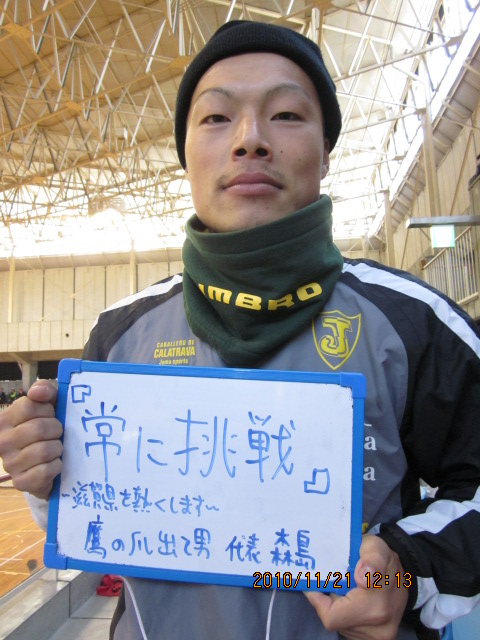 UMBRO
J
CABALLERO DE
CALATRAVA
Joma sports
『常に挑戦』
~滋賀県を熱くします~
鷹の爪出て男 代表 森島
2010/11/21 12:13